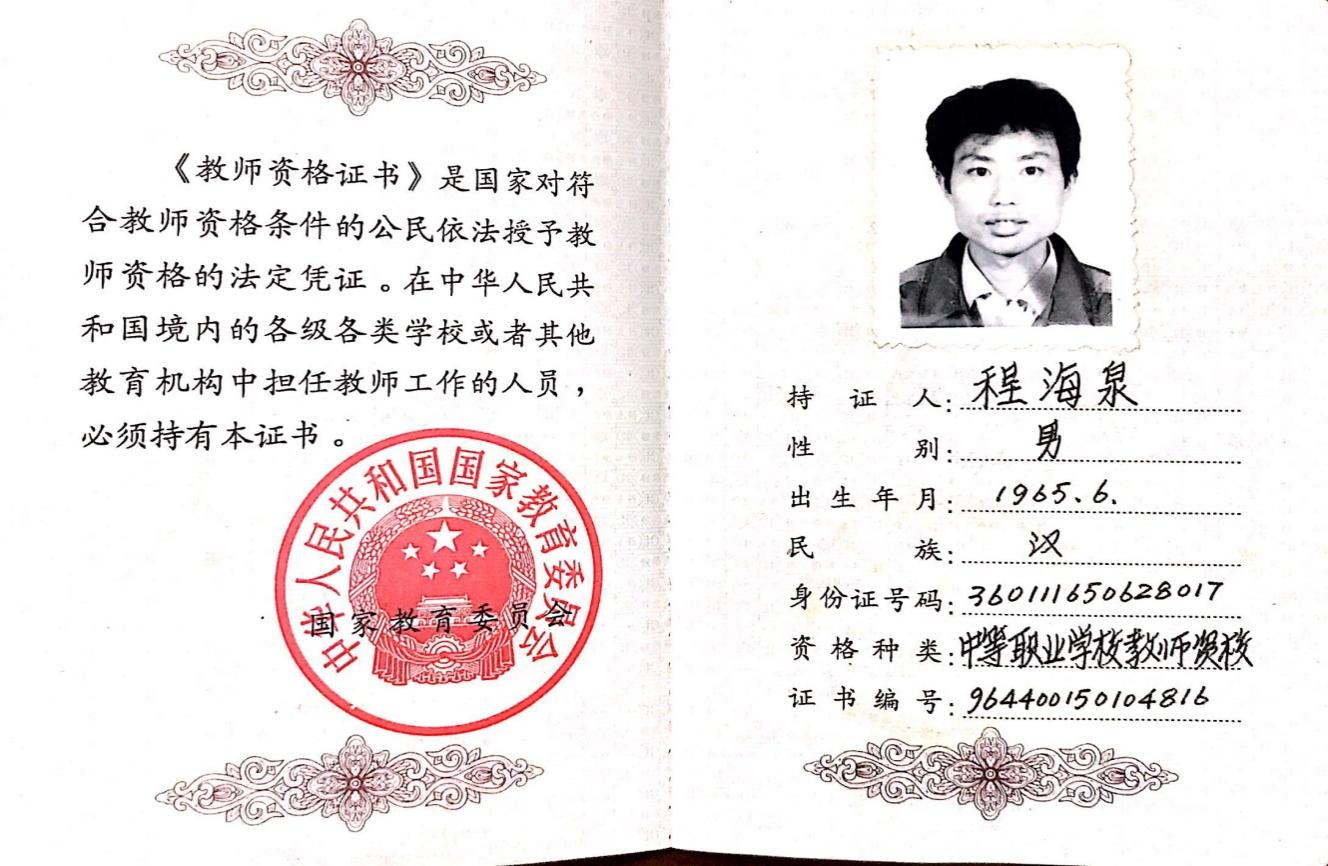 《教师资格证书》是国家对符
合教师资格条件的公民依法授予教
师资格的法定凭证。在中华人民共
和国境内的各级各类学校或者其他
教育机构中担任教师工作的人员，
必须持有本证书。
中华人民共和国国家教育委员会
国家教育委员会
持证人：程海泉
性别：男
出生年月：1965.6.
民族：汉
身份证号码：360111650628017
资格种类：中等职业学校教师资格
证书编号：964400150104816